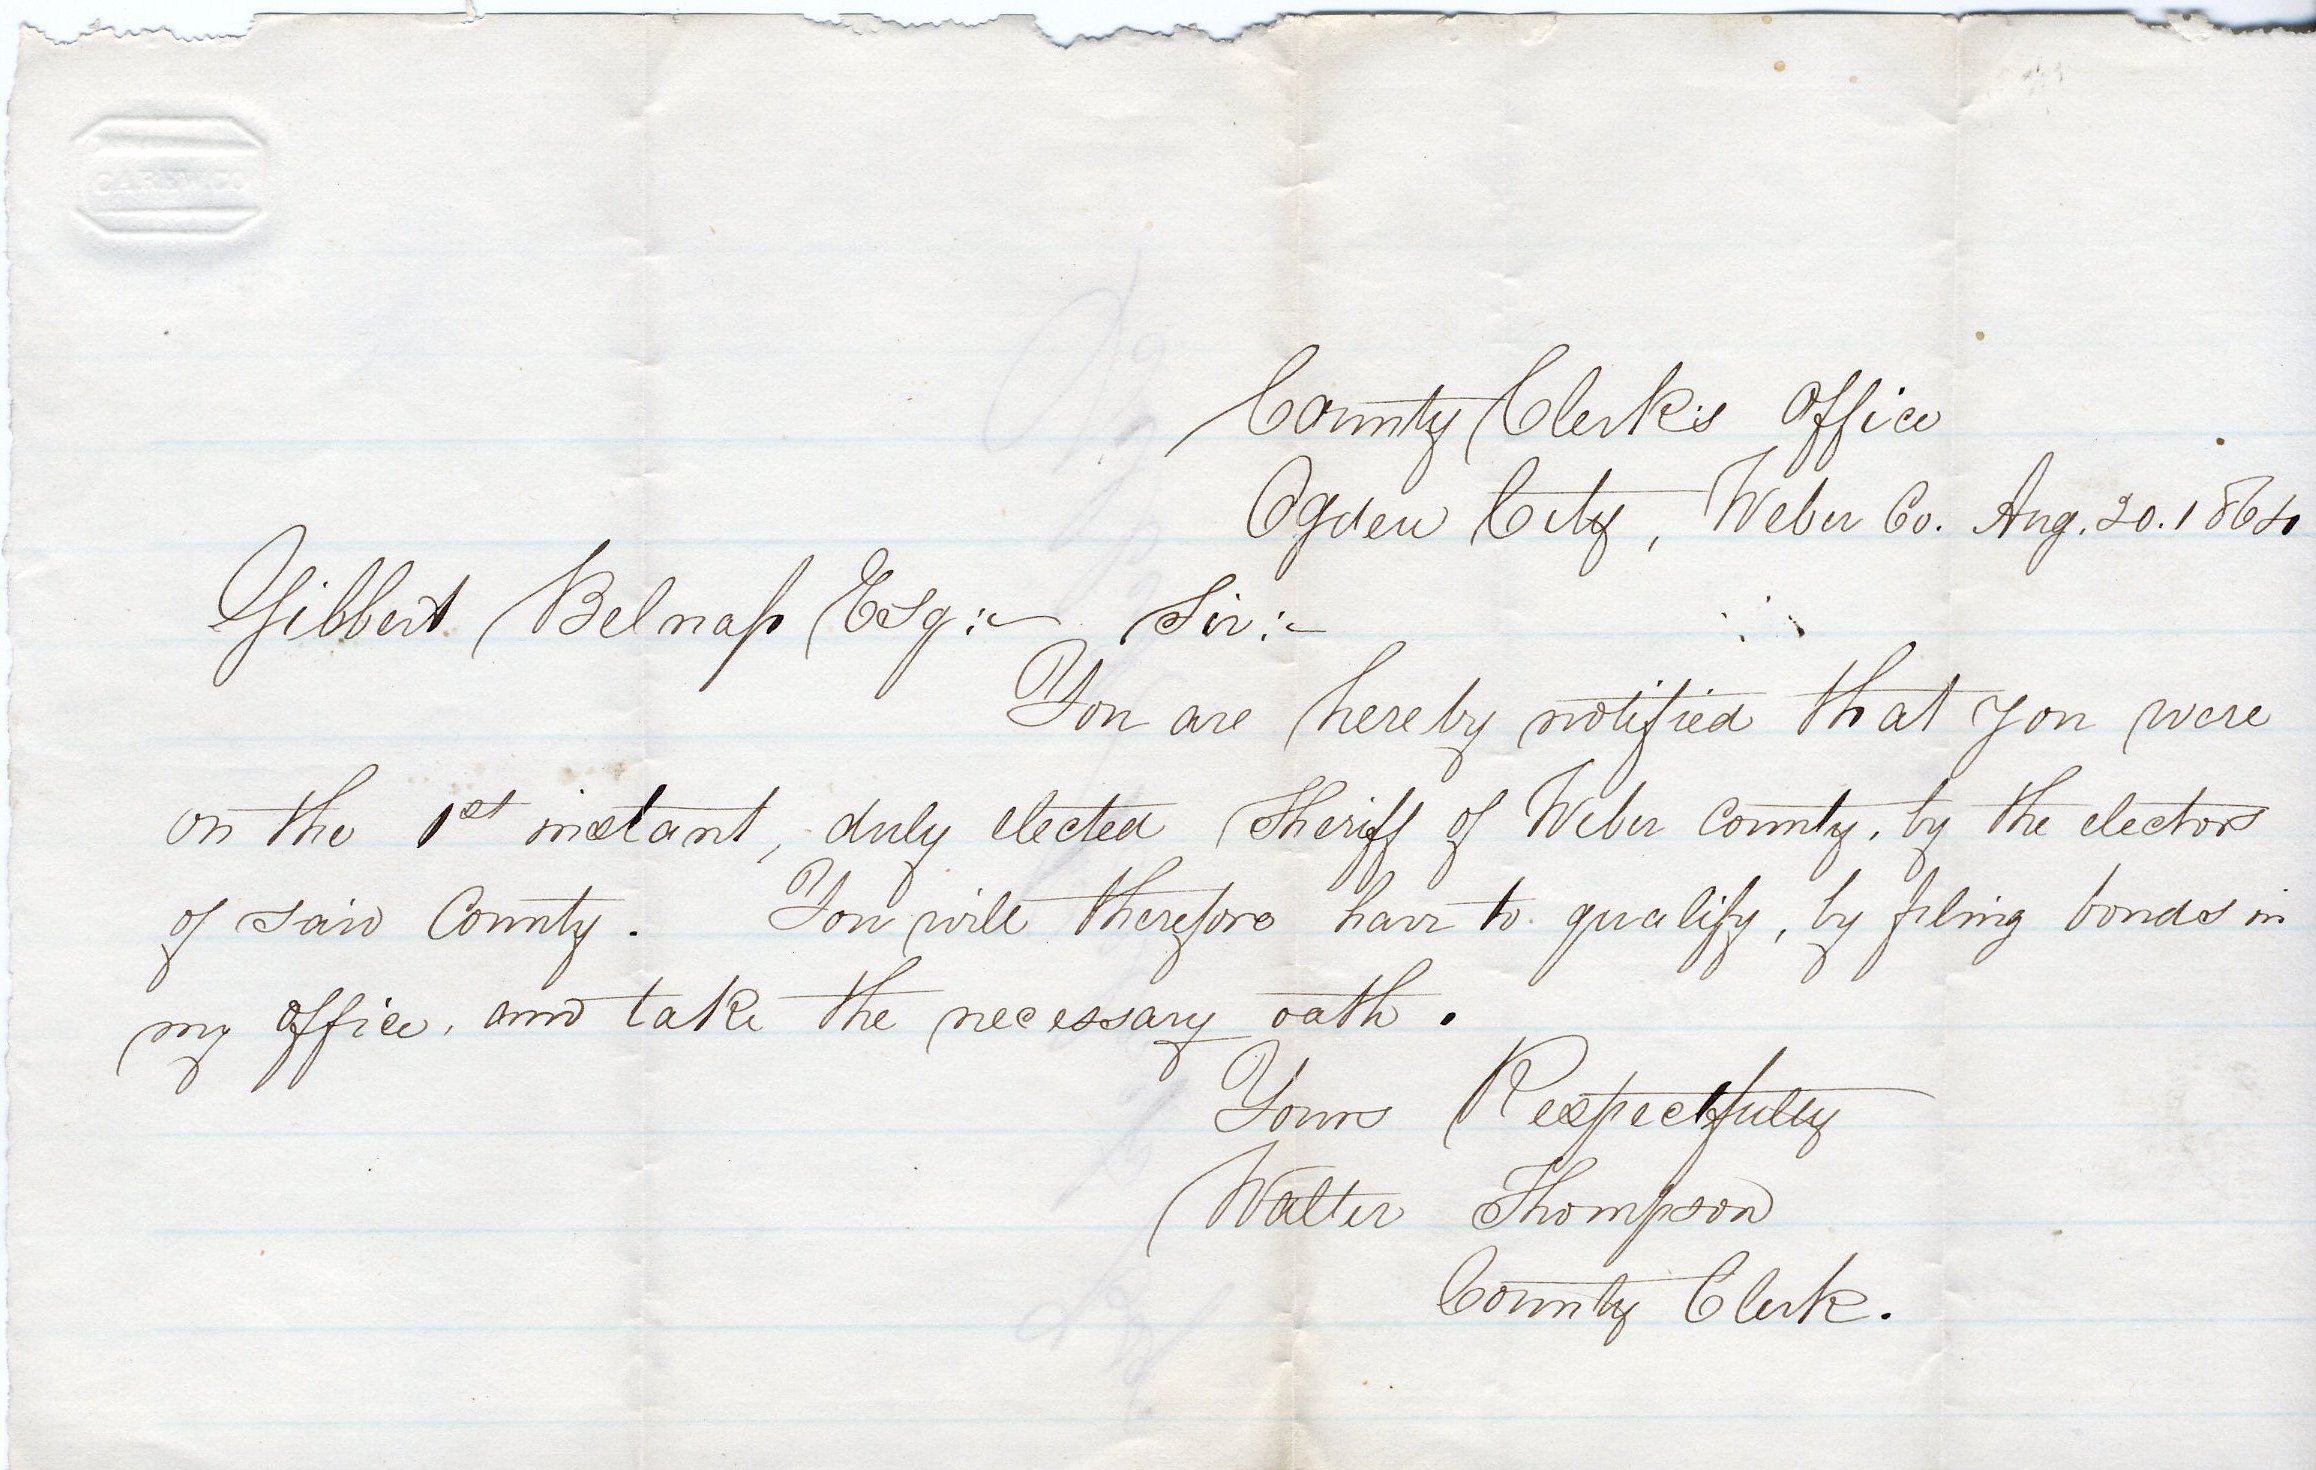 CAREW CO
County Clerk's Office
Ogden City, Weber Co. Aug. 20. 1864
Gilbert Belnap Esq:- Sir:-
You are hereby notified that you were
on the 1st instant, duly elected Sheriff of Weber County, by the electors
of said County. You will therefore have to qualify, by filing bonds in
my office, and take the necessary oath.
Yours Respectfully
Walter Thompson
County Clerk.